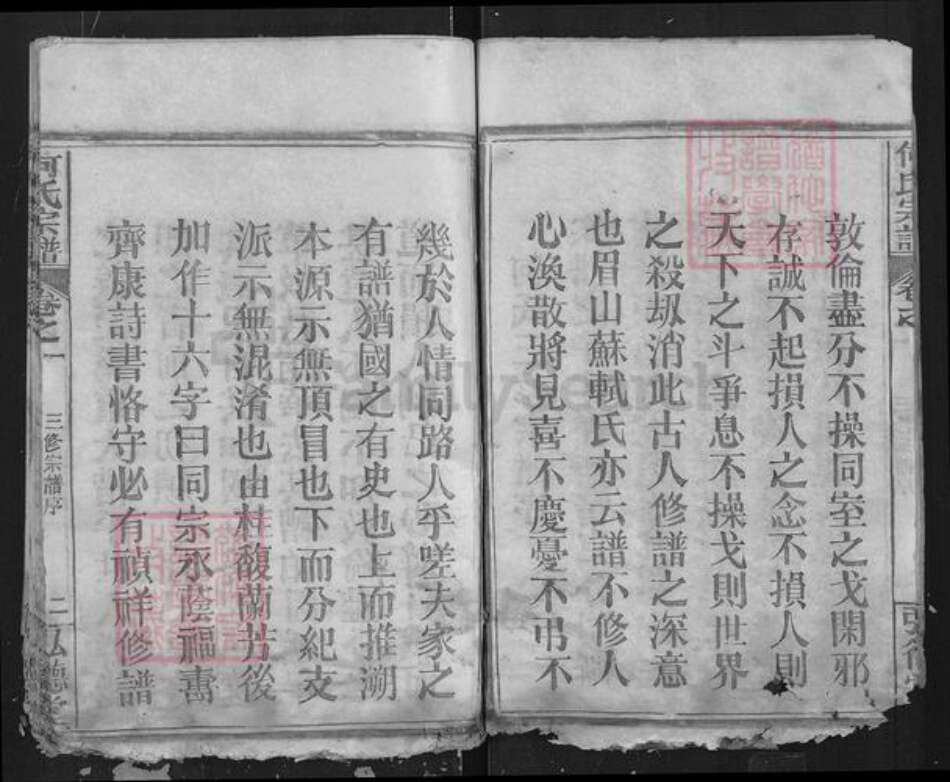 敦倫盡分不操同室之戈閑邪
存誠不起損人之念不損人則
天下之斗爭息不操戈則世界
之殺刼消此古人修譜之深意
也眉山蘇軾氏亦云譜不修人
心渙散將見喜不慶憂不弔不
幾於人情同路人乎嗟夫家之
有譜猶國之有史也上而推溯
本源示無頂冒也下而分紀支
派示無混淆也由桂馥蘭芳後
加作十六字曰同宗承蔭福壽
齊康詩書恪守必有禎祥修譜
何氏宗譜
卷之一
三修宗譜序
二
弘德堂
何氏宗譜
卷之
familysearch